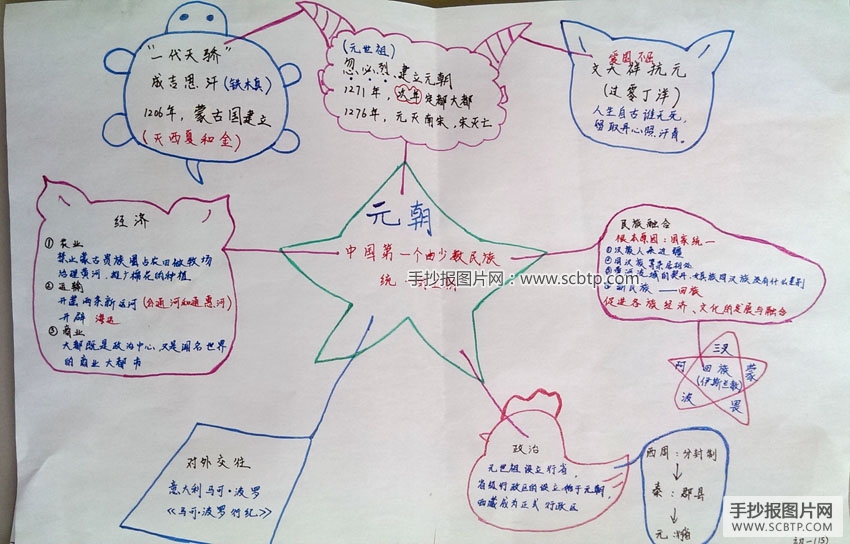 "一代天骄"
成吉思汗(铁木真)
1206年，蒙古国建立
(灭西夏和金)
(元世祖)
忽必烈 建立元朝
1271年，次年定都大都
1276年，元灭南宋，宋灭亡
爱国不屈
文天祥抗元
(过零丁洋)
人生自古谁无死，
留取丹心照汗青。
元朝
中国第一个由少数民族
统一
手抄报图片网：www.scbtp.com
经济
① 农业
禁止蒙古贵族圈占农田做牧场
治理黄河，推广棉花的种植
② 运输
开凿两条新运河(会通河和通惠河)
开辟 海运
③ 商业
大都既是政治中心，又是闻名世界
的商业大都市
民族融合
根本原因：国家统一
①汉族人来边疆
③黄河流域的契丹、女真族同汉族没有什么差别
④新民族 —— 回族
促进各族经济、文化的发展与融合
汉
蒙
畏
波
阿
回族
(伊斯兰教)
对外交往
意大利马可·波罗
《马可·波罗行纪》
政治
元世祖设立行省，
省级行政区的设立始于元朝，
西藏成为正式行政区
西周：分封制
↓
秦：郡县
↓
元：行省
手抄报图片网
WWW.SCBTP.COM